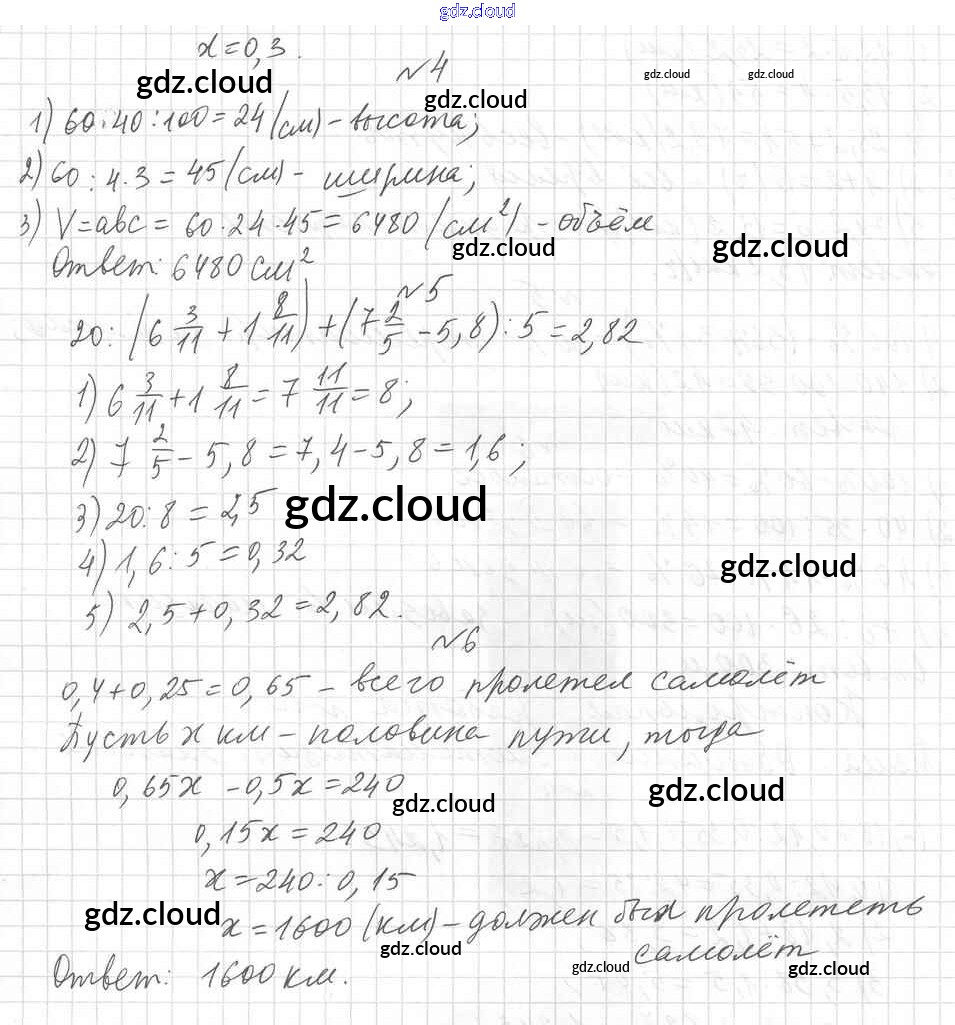 gdz.cloud
x=0,3.
gdz.cloud
№4
gdz.cloud gdz.cloud
gdz.cloud
1) 60·40:100=24(см)-высота;
2) 60:4·3=45(см)-ширина;
3) V=abc=60·24·45=6480(см²)-объём
gdz.cloud gdz.cloud
Ответ: 6480 см²
№5
20:(6 3/11+1 8/11)+(7 2/5-5,8):5=2,82
1) 6 3/11+1 8/11=7 11/11=8;
2) 7 2/5-5,8=7,4-5,8=1,6;
3) 20:8=2,5
gdz.cloud
4) 1,6:5=0,32
gdz.cloud
5) 2,5+0,32=2,82.
№6
0,4+0,25=0,65-всего пролетел самолёт
Пусть x км-половина пути, тогда
0,65x-0,5x=240
gdz.cloud gdz.cloud
0,15x=240
x=240:0,15
gdz.cloud
x=1600(км)-должен был пролететь
самолёт
gdz.cloud gdz.cloud gdz.cloud
Ответ: 1600 км.